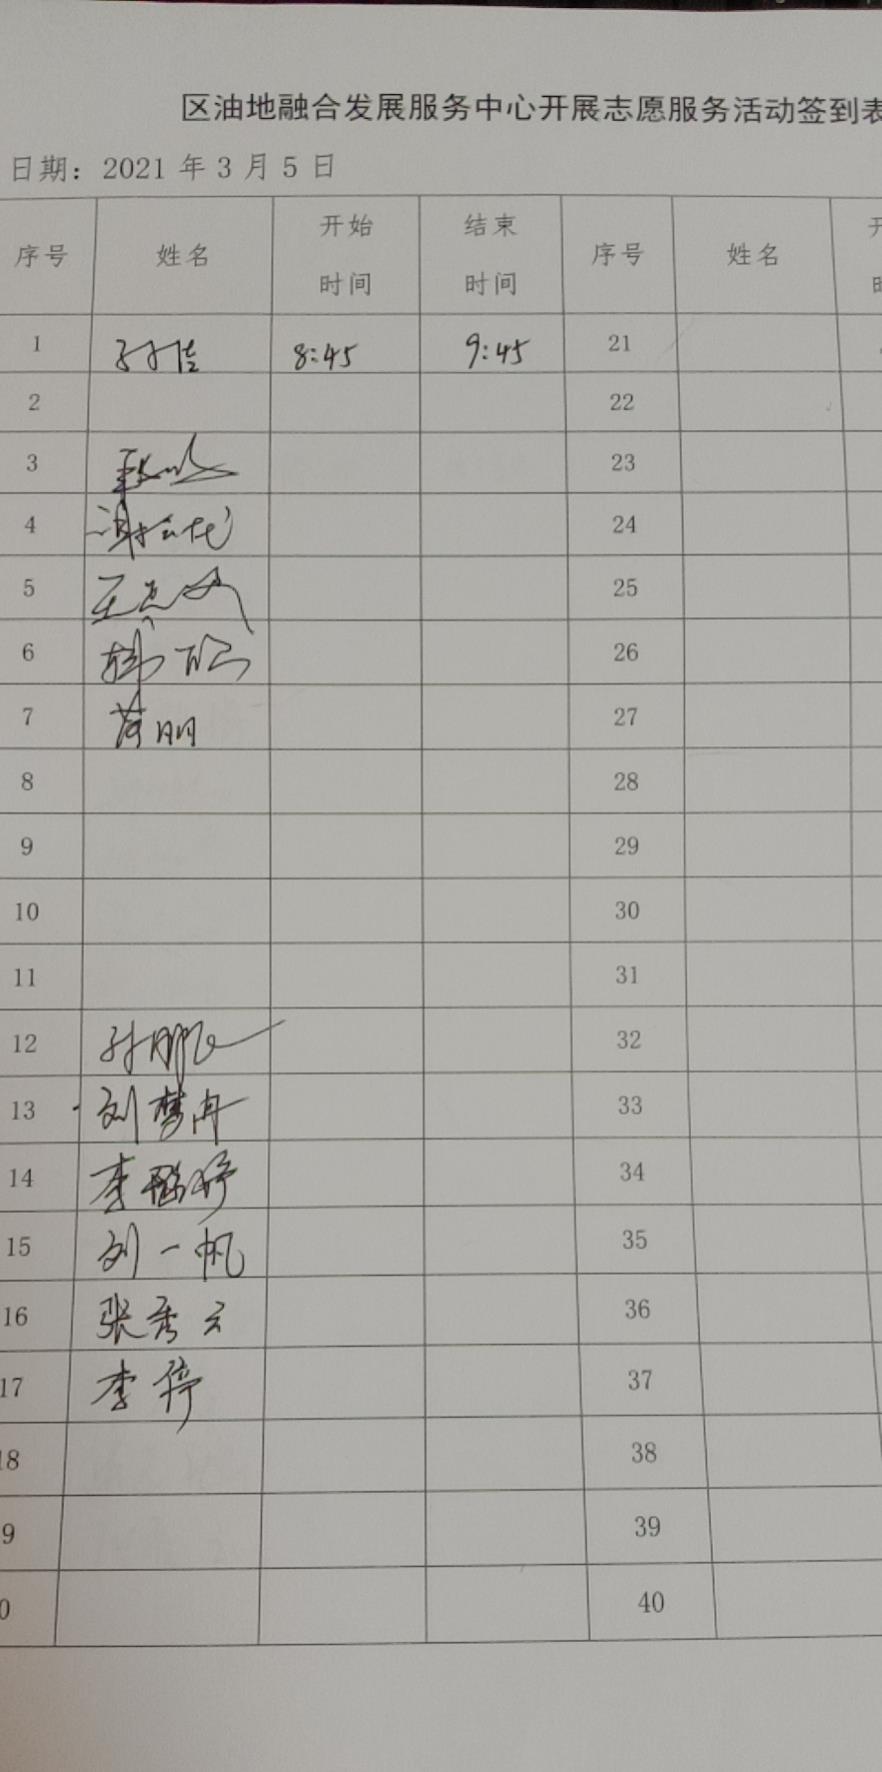 区油地融合发展服务中心开展志愿服务活动签到表
日期：2021 年 3 月 5 日
序号 姓名 开始时间 结束时间 序号 姓名
1 孙佳 8:45 9:45 21
2 22
3 23
4 24
5 25
6 26
7 明 27
8 28
9 29
10 30
11 31
12 孙鹏飞 32
13 刘梦冉 33
14 李 婷 34
15 刘一帆 35
16 张秀云 36
17 李倩 37
18 38
9 39
0 40